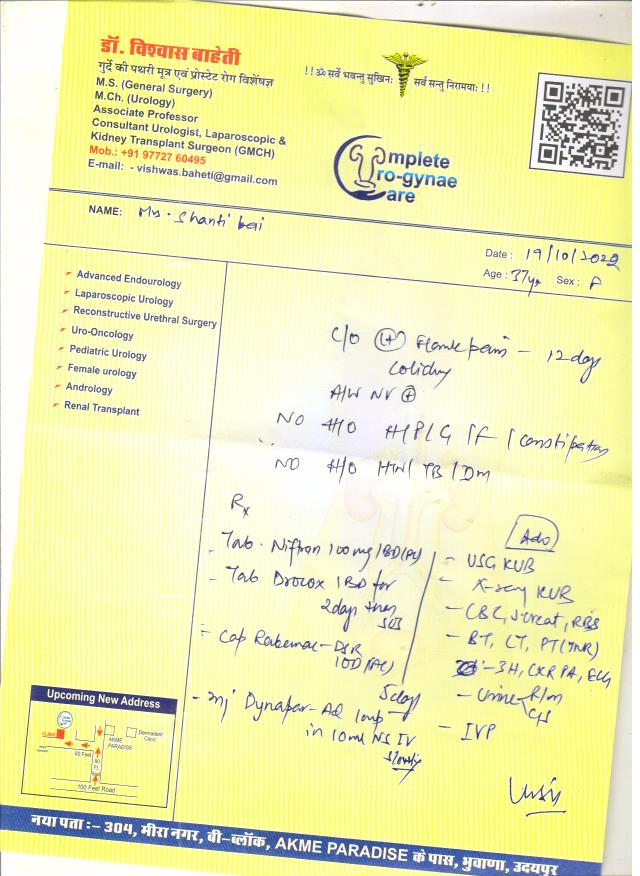 डॉ. विश्वास बाहेती
गुर्दे की पथरी मूत्र एवं प्रोस्टेट रोग विशेषज्ञ
M.S. (General Surgery)
M.Ch. (Urology)
Associate Professor
Consultant Urologist, Laparoscopic &
Kidney Transplant Surgeon (GMCH)
Mob.: +91 97727 60495
E-mail: - vishwas.baheti@gmail.com
!! ॐ सर्वे भवन्तु सुखिनः सर्व सन्तु निरामयाः !!
Complete
Uro-gynae
Care
NAME: Mrs. Shanti bai
Date : 19/10/2022
Age : 37yr Sex : F
Advanced Endourology
Laparoscopic Urology
Reconstructive Urethral Surgery
Uro-Oncology
Pediatric Urology
Female urology
Andrology
Renal Transplant
C/O (Lt) Flank pain - 12 days
Colicky
A/W NV +
NO H/O H/P/G/F/Constipation
NO H/O HTN/TB/DM
Rx
- Tab. Niftran 100mg 1BD (PC)
- Tab Drocox 1BD for
2days then
SOS
- Cap Rabemac-DSR
1OD (AC)
5days
- Inj Dynapar-AQ 1amp
in 10ml NS IV
slowly
Adv
- USG KUB
- X-ray KUB
- CBC, S.creat, RBS
- BT, CT, PT (INR)
- 3H, CXR PA, ECG
- Urine R/m
C/s
- IVP
Upcoming New Address
CLINIC
AKME
PARADISE
Dermadent
Clinic
60 Feet
100 Feet Road
नया पता :– 304, मीरा नगर, बी-ब्लॉक, AKME PARADISE के पास, भुवाणा, उदयपुर